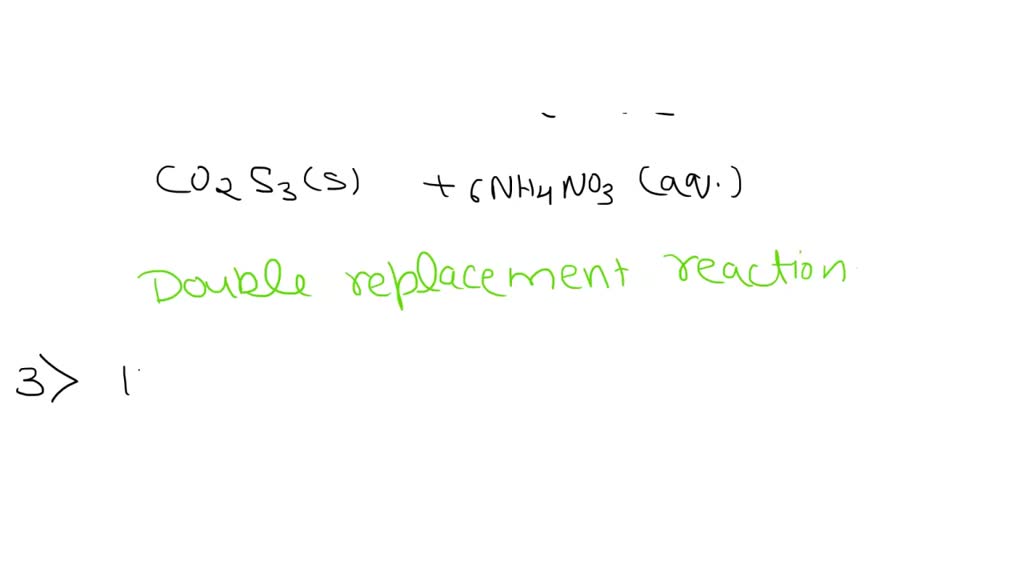 CO2S3(s) + 6NH4NO3 (aq.)
Double replacement reaction
3> 1